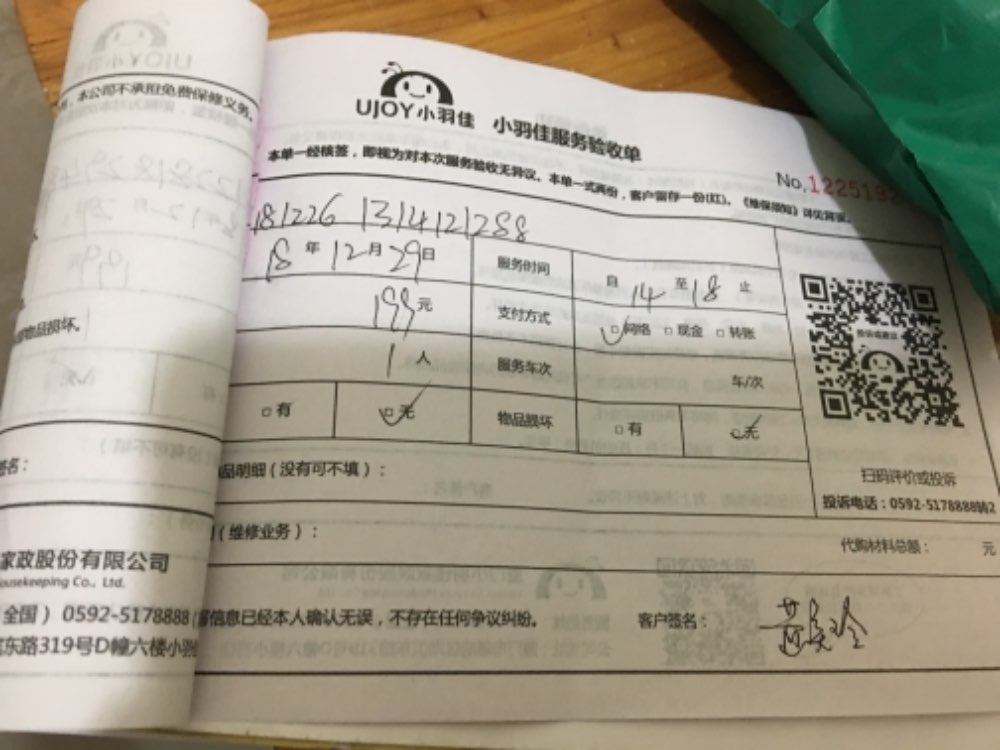 UJOY小羽佳 小羽佳服务验收单
本公司不承担免费保修义务。
本单一经核签，即视为对本次服务验收无异议。本单一式两份，客户留存一份(红)。《维保须知》详见背面。
No.1225132
181226 1314121288
18年12月29日 服务时间 自14至18止
199元 支付方式 网络 现金 转账
1人 服务车次 车/次
有 无 物品损坏 有 无
物品损坏。
扫码评价或投诉
投诉电话：0592-5178888转2
签名：
品明细（没有可不填）：
（维修业务）：
代购材料总额： 元
家政股份有限公司
ousekeeping Co., Ltd.
全国）0592-5178888
信息已经本人确认无误，不存在任何争议纠纷。
客户签名：
东路319号D幢六楼小羽